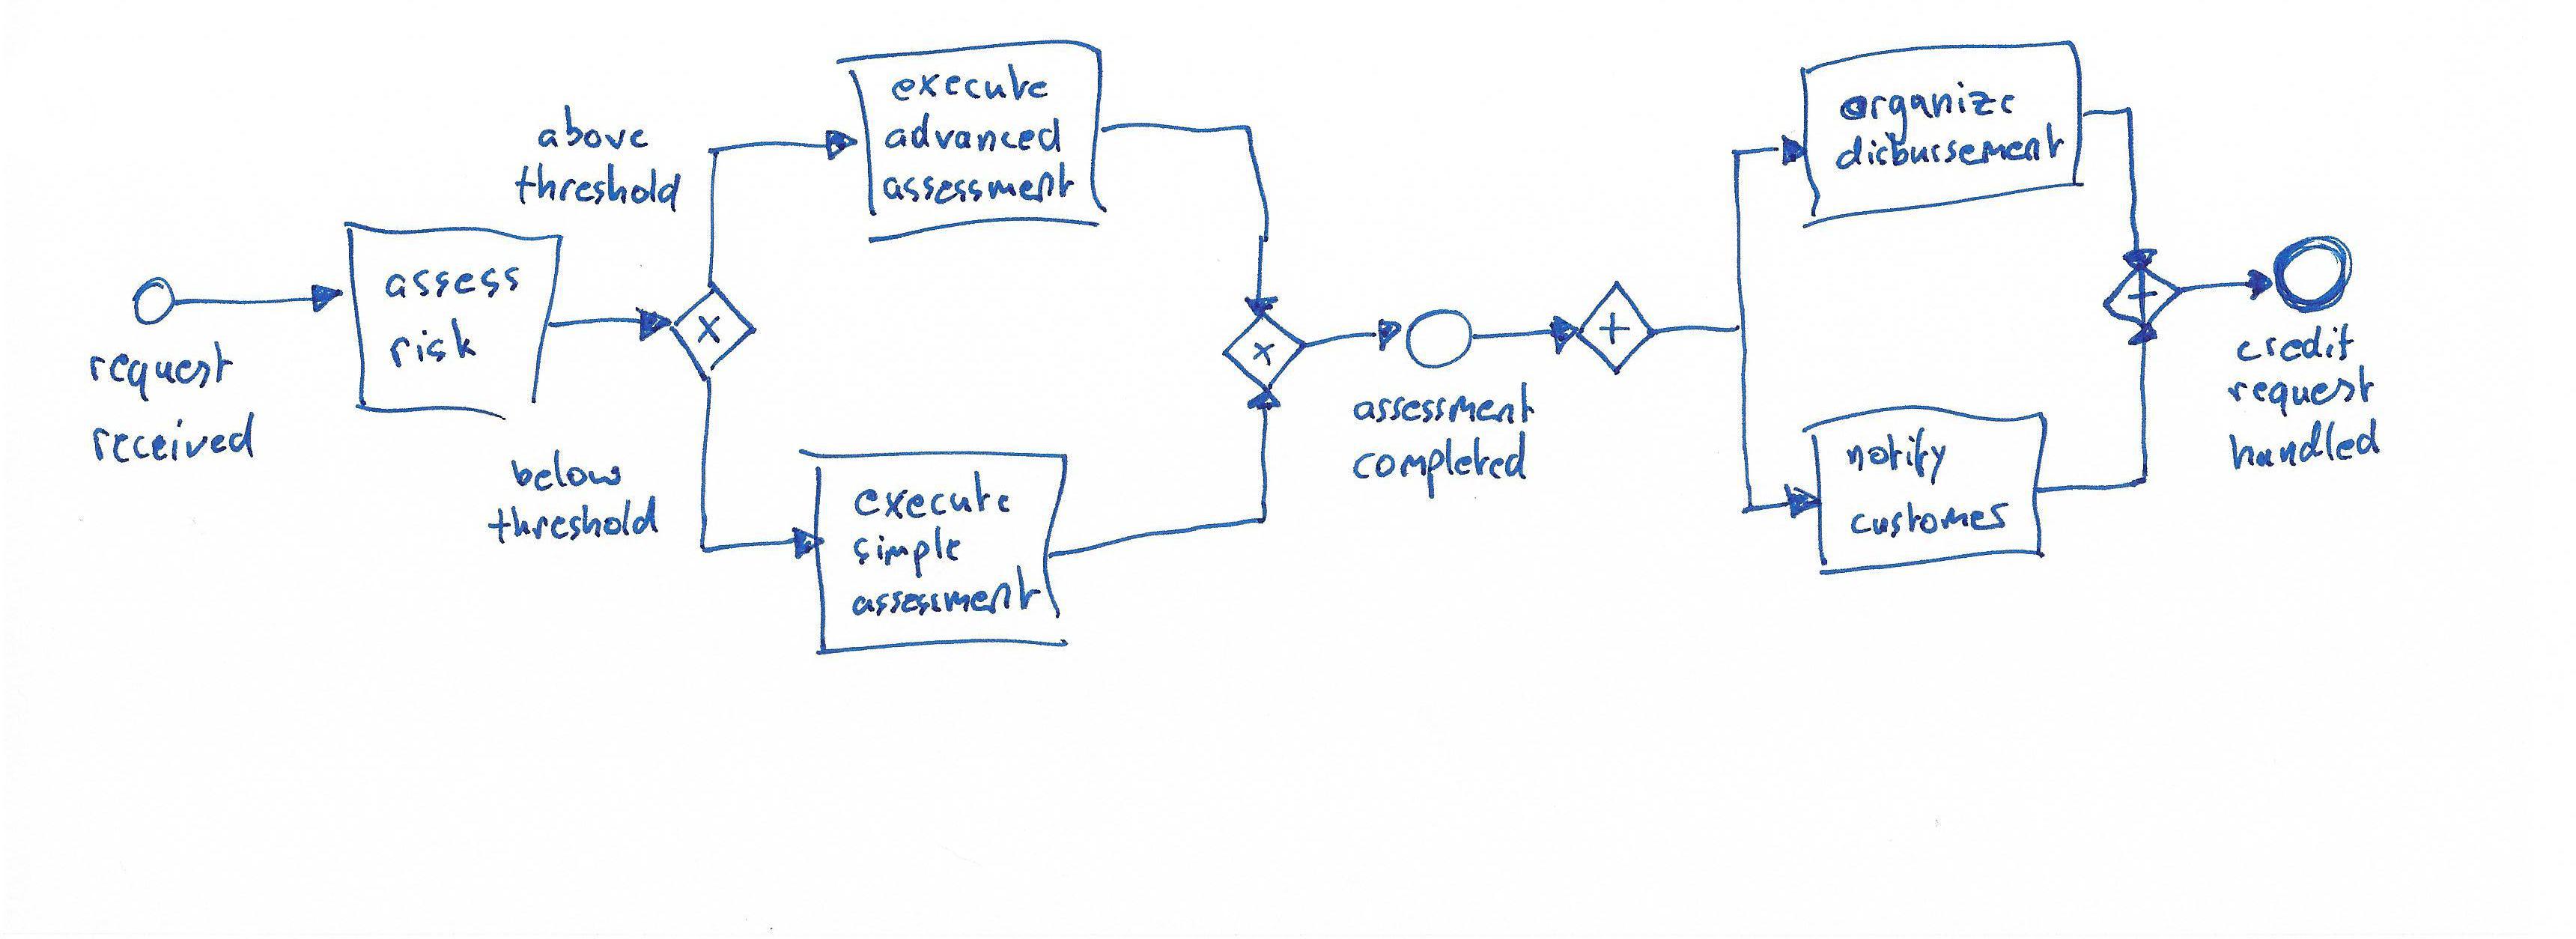 request
received
assess
risk
above
threshold
below
threshold
X
execute
advanced
assessment
execute
simple
assessment
x
assessment
completed
+
organize
disbursement
notify
customes
+
credit
request
handled